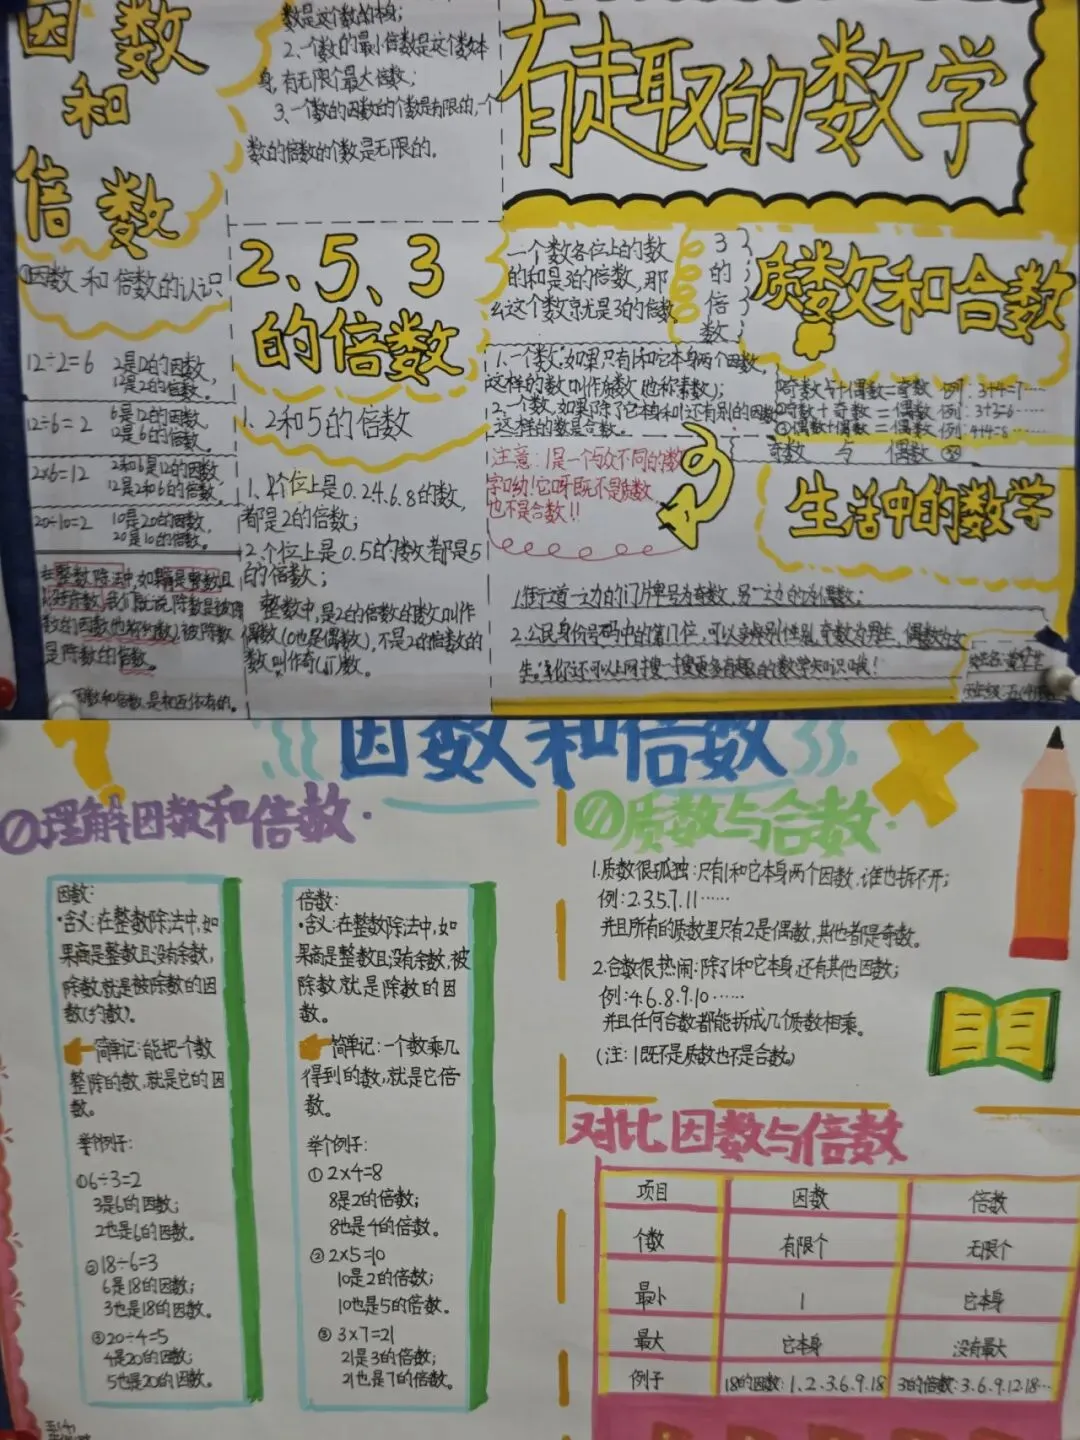 因数
和
倍数
数是这个数的本身;
2、一个数的最小倍数是这个数本
身,有无限个最大倍数;
3、一个数的因数的个数是有限的,一个
数的倍数的个数是无限的.
有趣的数学
①因数和倍数的认识
12÷2=6 2是12的因数,
12是2的倍数.
12÷6=2 6是12的因数,
12是6的倍数.
2×6=12 2和6是12的因数,
12是2和6的倍数.
20÷10=2 10是20的因数,
20是10的倍数.
在整数除法中,如果商是整数且
没有余数,我们就说除数是被除
数的因数(也称约数),被除数
是除数的倍数.
因数和倍数是相互依存的。
2、5、3
的倍数
1、2和5的倍数
1、个位上是0.2.4.6.8的数,
都是2的倍数;
2.个位上是0.5的数都是5
的倍数;
整数中,是2的倍数的数叫作
偶数(0也是偶数),不是2的倍数的
数叫作奇(jī)数。
一个数各位上的数
的和是3的倍数,那
么这个数就是3的倍数
3
的
倍
数
质数和合数
1.一个数,如果只有1和它本身两个因数,
这样的数叫作质数(也称素数);
2.一个数,如果除了它本身和1还有别的因数
这样的数是合数。
注意:1是一个与众不同的数
字呦!它呀既不是质数,
也不是合数!!
①奇数+偶数=奇数 例:3+4=7……
②奇数+奇数=偶数 例:3+3=6……
③偶数+偶数=偶数 例:4+4=8……
奇数 与 偶数
生活中的数学
1.街道一边的门牌号为奇数,另一边的为偶数;
2.公民身份号码中的第17位,可以辨别性别,奇数为男生,偶数为女
生。你还可以上网搜一搜更多有趣的数学知识哦!
姓名:
班级:五
因数和倍数
①理解因数和倍数.
因数:
·含义:在整数除法中,如
果商是整数且没有余数,
除数就是被除数的因
数(约数)。
简单记:能把一个数
整除的数,就是它的因
数。
举个例子:
①6÷3=2
3是6的因数;
2也是6的因数。
②18÷6=3
6是18的因数;
3也是18的因数。
③20÷4=5
4是20的因数;
5也是20的因数。
倍数:
·含义:在整数除法中,如
果商是整数且没有余数,被
除数就是除数的因
数。
简单记:一个数乘几
得到的数,就是它倍
数。
举个例子:
①2×4=8
8是2的倍数;
8也是4的倍数。
②2×5=10
10是2的倍数;
10也是5的倍数。
③3×7=21
21是3的倍数;
21也是7的倍数。
②质数与合数.
1.质数很孤独:只有1和它本身两个因数,谁也拆不开;
例:2.3.5.7.11……
并且所有的质数里只有2是偶数,其他都是奇数。
2.合数很热闹:除了1和它本身,还有其他因数;
例:4.6.8.9.10……
并且任何合数都能拆成几个质数相乘。
(注:1既不是质数也不是合数。)
对比因数与倍数
项目 因数 倍数
个数 有限个 无限个
最小 1 它本身
最大 它本身 没有最大
例子 18的因数:1.2.3.6.9.18 3的倍数:3.6.9.12.18…